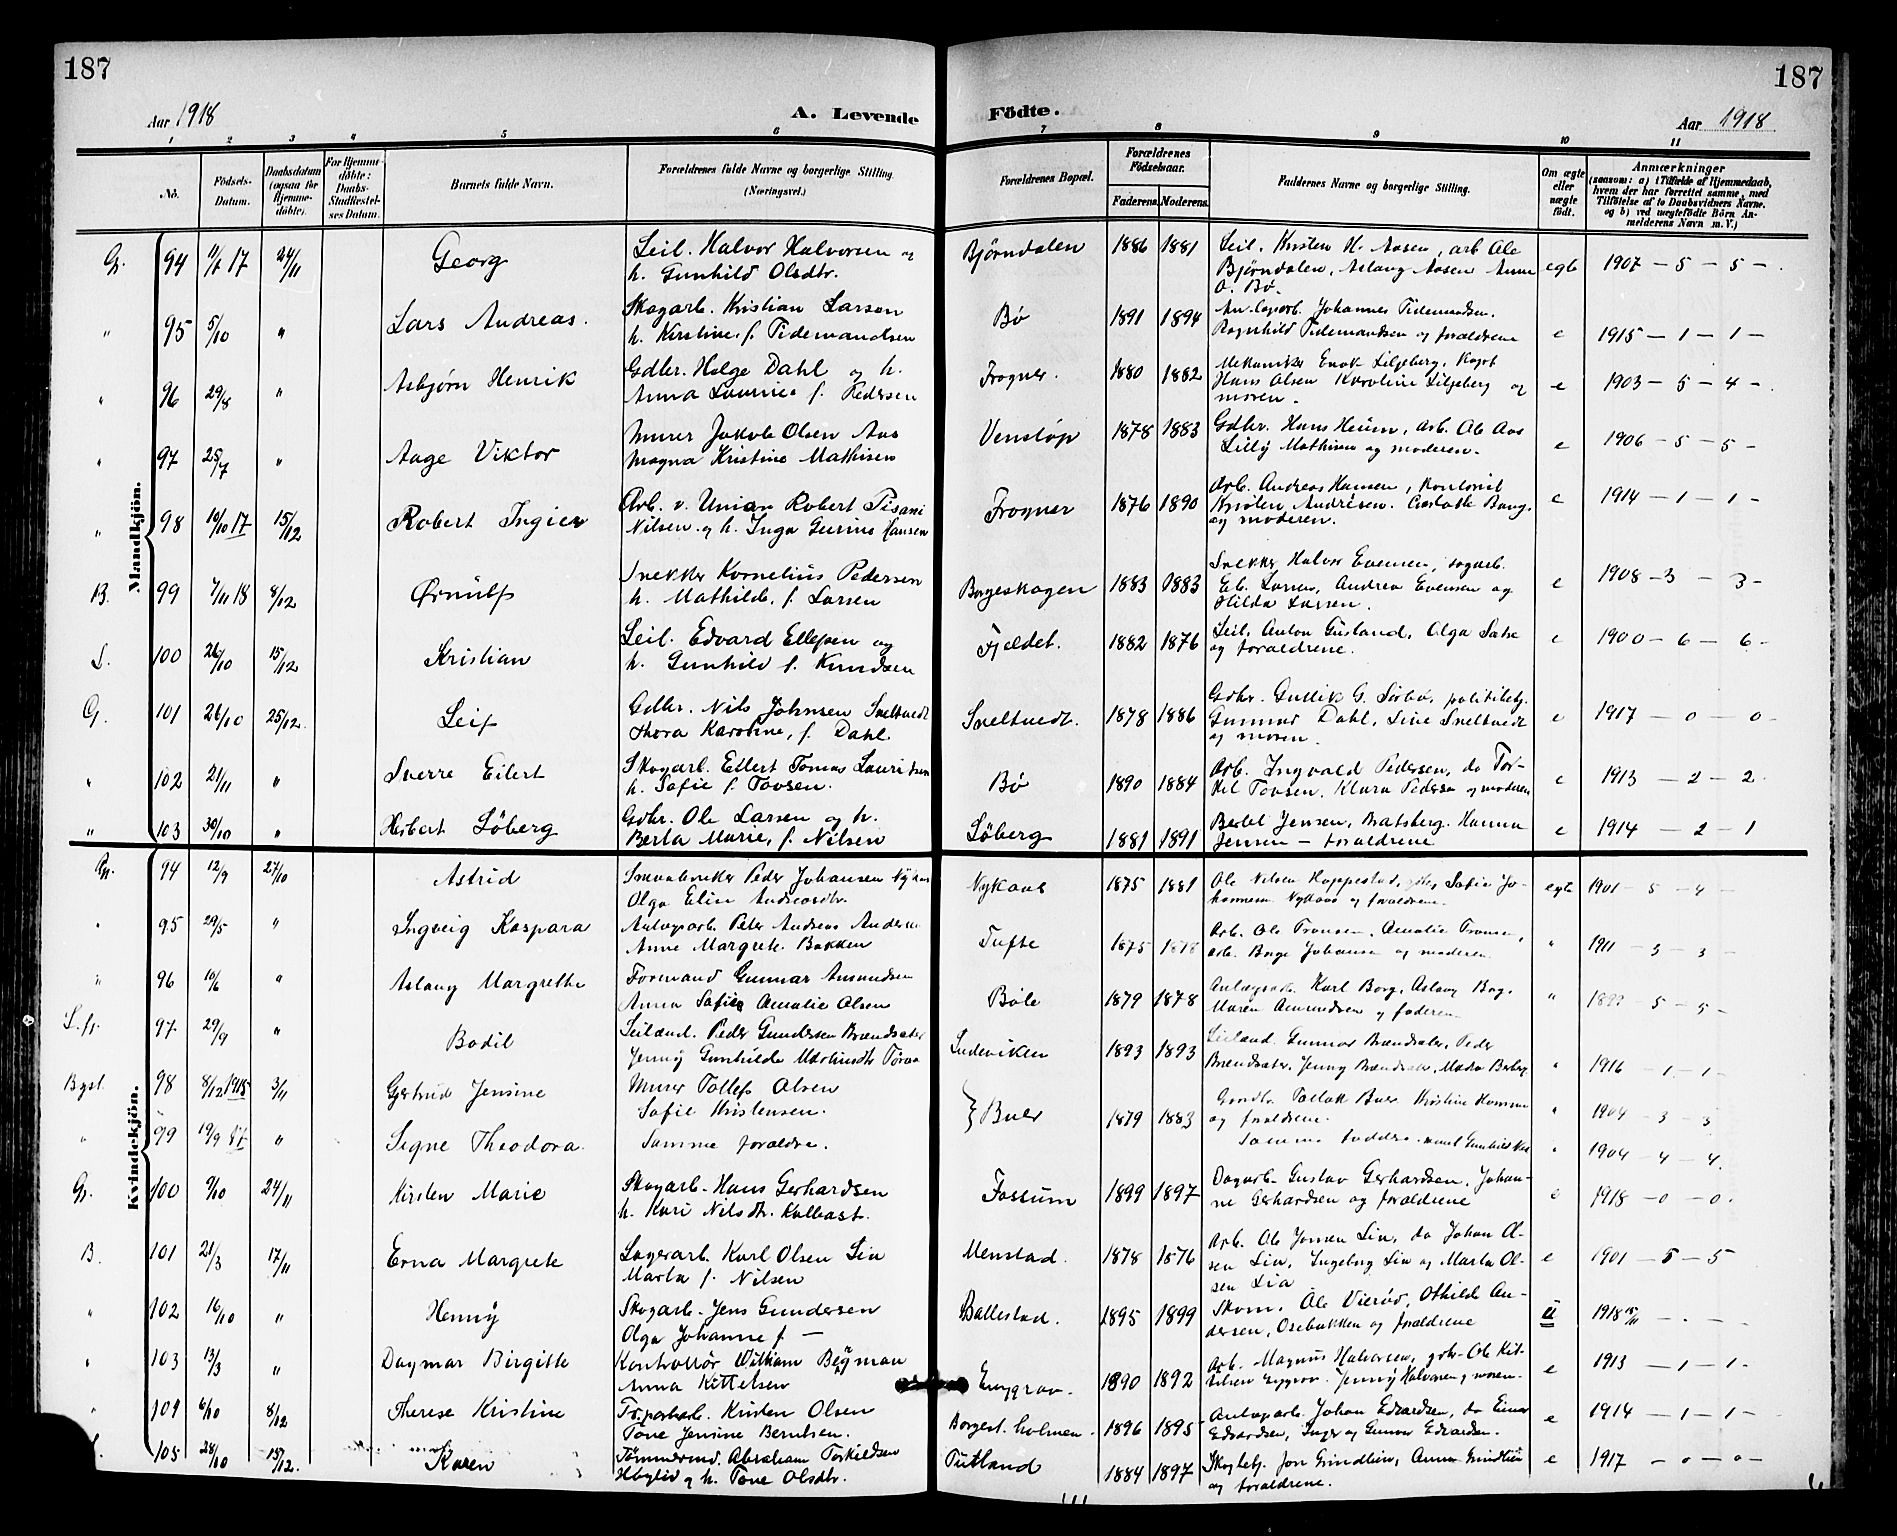 187
187
Aar 1918
A. Levende
Födte.
Aar 1918
1 2 3 4 5 6 7 8 9 10 11
No.
Födsels-Datum.
Daabsdatum (ogsaa for Hjemme-döbte).
For Hjemmedöbte: Daabs-Stadfæstelses Datum.
Barnets fulde Navn.
Forældrenes fulde Navne og borgerlige Stilling.
(Næringsvei.)
Forældrenes Bopæl.
Forældrenes Födselsaar.
Faderens. Moderens.
Faddernes Navne og borgerlige Stilling.
Om ægte eller uægte födt.
Anmærkninger
(saasom: a) i Tilfælde af Hjemmedaab, hvem der har forrettet samme, med Tilföielse af to Daabsvidners Navne, og b) ved uægtefödte Börn Anmelderens Navn m. V.)
Mandkjön.
G. 94 17 24/11 Georg Seil. Halvor Halvorsen og Bjørndalen 1886 1881 Seil. Kristen H. Aasen, arb. Ole egte 1907 - 5 - 5 -
h. Gunhild Olsdtr. Bjørndalen, Aslaug Aasen Anne
O. Bø.
" 95 5/10 " Lars Andreas. Skogarb. Kristian Larsen Bø 1891 1894 Johannes Tidemandsen. e 1915 - 1 - 1 -
h. Kirstine f. Tidemandsen Ragnhild Tidemandsen og forældrene
" 96 29/8 " Asbjørn Henrik Gdbr. Helge Dahl og h. Frogner. 1880 1882 Mekaniker Enok Liljeberg, e 1903 - 5 - 4 -
Anna Laurine f. Pedersen Hans Olsen Karoline Liljeberg og
moren.
" 97 25/7 " Aage Viktor Murer Jakob Olsen Aas Venstøp 1878 1883 Gdbr. Hans Heium, Arb. Ole Aas e 1906 - 5 - 5 -
Magna Kristine Mathisen Lilly Mathisen og moderen.
" 98 10/10 17 15/12 Robert Ingier Arb. v. Union Robert Pisani Frogner 1876 1890 Arb. Andreas Hansen, Kontorist e 1914 - 1 - 1 -
Nilsen og h. Inga Gurine Hansen Andrésen.
og moderen.
B. 99 7/11 18 8/12 Ørnulf Snekker Kornelius Pedersen Borgeskogen 1883 1883 Snekker Halvor Evensen, e 1908 - 3 - 3 -
h. Mathilde f. Larsen Larsen, Andrea Evensen og
Hilda Larsen.
S. 100 26/10 15/12 Kristian Seil. Edvard Ellefsen og Fjeldet. 1882 1876 Seil. Anton Gusland, Olga e 1900 - 6 - 6 -
h. Gunhild f. Knudsen og forældrene.
G. 101 26/10 25/12. Leif Gdbr. Nils Johnsen Sneltvedt Sneltvedt. 1878 1886 Gdbr. Gullik G. Sørbø, politibetj. e 1917 - 0 - 0 -
Thora Karoline, f. Dahl. Gunnar Dahl, Line Sneltvedt
og moren.
" 102 21/11 " Sverre Eilert Skogarb. Ellert Tomas Lauritsen Bø 1890 1884 Arb. Ingvald Pedersen, do Tor- e 1913 - 2 - 2
h. Sofie f. Tovsen. kel Tovsen, Klara Pedersen og moderen
" 103 30/10 " Herbert Löberg Gdbr. Ole Larsen og h. Löberg 1881 1891 Bertel Jensen, Bratsberg. Hanna e 1914 - 2 - 1
Berta Marie, f. Nilsen Jensen - forældrene
Kvindekjön.
Gj. 94 12/9 27/10 Astrid Peder Johansen Nykaas 1875 1881 Ole Nilsen Hoppestad, Sofie Jo- egte 1901 - 5 - 4 -
Olga Elise Andreasdtr. hannesen Nykaas og forældrene.
" 95 29/5 " Ingveig Kaspara Anlægsarb. Peter Andreas Andersen Tufte 1875 1878 Arb. Ole Fransen, Amalie Fransen, " 1911 - 3 - 3 -
Anne Margrete Bakken arb. Johansen og moderen.
" 96 10/6 " Aslaug Margrethe Formand Gunnar Amundsen Bøle 1879 1878 Karl Borg, Aslaug Borg. " - 5 - 5 -
Anna Sofie Amalie Olsen Maren Amundsen og faderen
S. fr. 97. 29/9 " Bodil Peder Gundersen Brændsæter 1893 1893 Gunnar Brændsæter, Peder " 1916 - 1 - 1 -
Jenny Gunhilde Brændsæter, Jenny Brændsæter,
Bgst. 98 8/12 1915 3/11 Gjertrud Jensine Murer Tollef Olsen } Buer 1879 1883 Tollak Buer Kristine Hansen " 1904 - 3 - 3
Sofie Kristensen. og forældrene.
" 99 19/9 17 " Signe Theodora. Samme forældre. Samme faddere " 1904 - 4 - 4.
Gj. 100 9/10 24/11 Kirsten Marie Skogarb. Hans Gerhardsen Fossum 1899 1897 Dagarb. Gustav Gerhardsen, Johan- e 1918 - 0 - 0.
h. Kari Nilsdtr. Kalhast. ne Gerhardsen og forældrene
B. 101 21/3 17/11 Erna Margrete Lagerarb. Karl Olsen Lia Menstad. 1878 1876 Arb. Ole Jensen Lia, do Johan Ol- e 1901 - 5 - 5
Marta f. Nilsen sen Lia, Ingeborg Lia og Marta Ol-
sen Lia
" 102 16/10 " Henny Skogarb. Jens Gundersen Ballestad. 1895 1899 Skom. Ole Vierød, Othilde An- u 1918 15/11 - . -
Olga Johanne f. - dersen, Osebakken og forældrene
" 103 13/3 " Dagmar Birgitte Kontrollör William Bergman 1890 1892 Arb. Magnus Halvorsen, gdbr. Ole Kit- e 1913 - 1 - 1 -
Anna Kittelsen telsen Jenny Halvorsen og moren.
" 104 6/10 8/12 Therese Kristine Kristen Olsen Borgest. holmen. 1896 1895 Anlægsarb. Johan Edvardsen, do Einar e 1914 - 1 - 1 -
Tone Jensine Berntsen. Edvardsen, Inger og Gunvor Edvardsen.
105 28/10 15/12. Karen Tömmermd. Abraham Torkildsen Tutland 1884 1897 Skogbetj. Jon Grindlien, Anna Grindlien e 1917 - 0 - 0 -
og h. Tone Olsdtr. og forældrene.